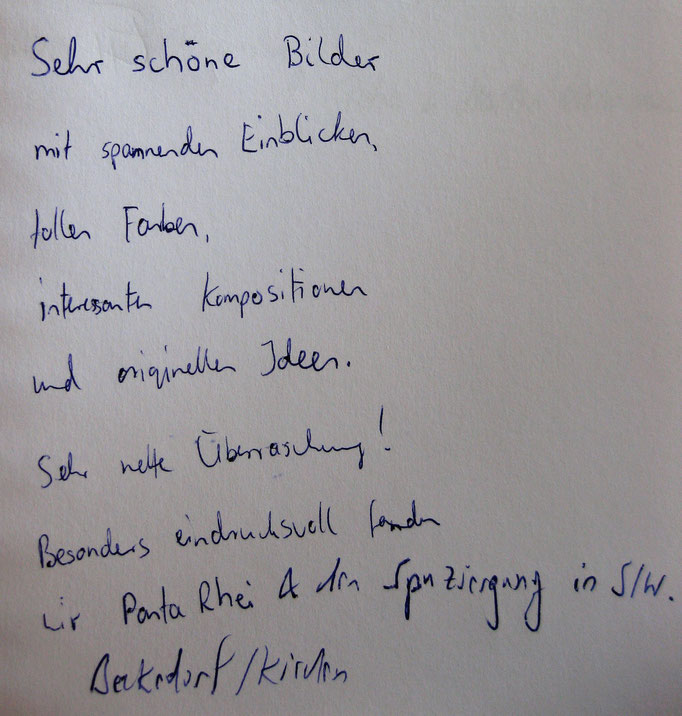 Sehr schöne Bilder
mit spannenden Einblicken,
tollen Farben,
interessanten Kompositionen
und originellen Ideen.
Sehr nette Überraschung!
Besonders eindrucksvoll fanden
wir Panta Rhei & den Spaziergang in S/W.
/Kirchen